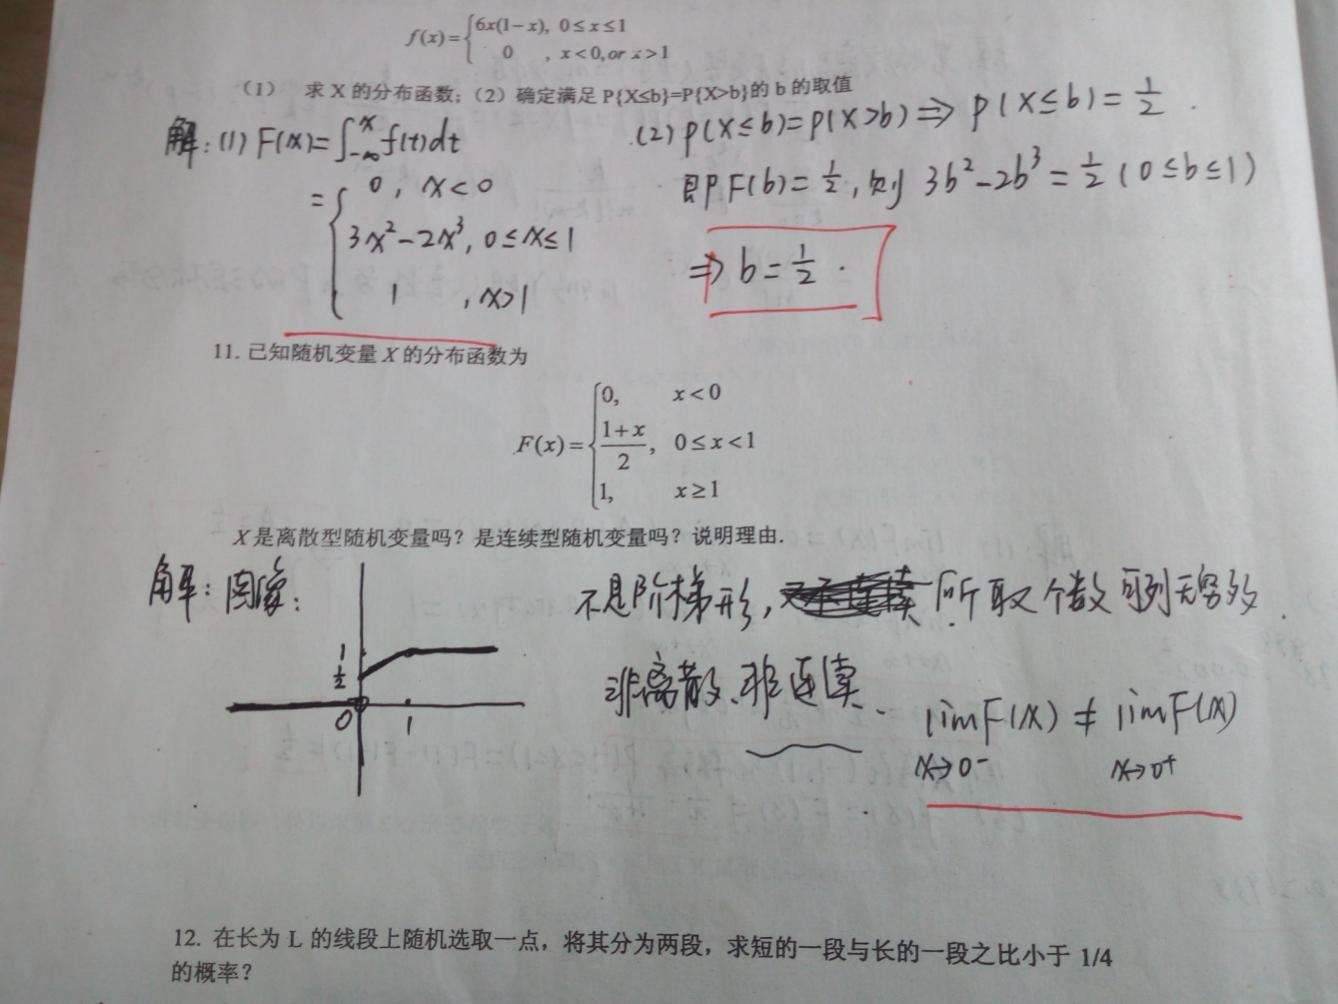 f(x)={6x(1-x), 0≤x≤1
0 , x<0,or x>1
（1） 求 X 的分布函数；（2）确定满足 P{X≤b}=P{X>b}的 b 的取值
解：(1) F(x)=∫_{-∞}^{x} f(t)dt
={0, x<0
3x²-2x³, 0≤x≤1
1 , x>1
(2) p(X≤b)=p(X>b) ⇒ p(X≤b)=1/2 .
即 F(b)=1/2, 则 3b²-2b³=1/2 (0≤b≤1)
⇒ b=1/2 .
11. 已知随机变量 X 的分布函数为
F(x)={0, x<0
(1+x)/2, 0≤x<1
1, x≥1
X 是离散型随机变量吗？是连续型随机变量吗？说明理由.
解：图像：
1
1/2
0 1
不是阶梯形, 所取个数 可列无穷
非离散、非连续、
lim F(x) ≠ lim F(x)
x→0⁻ x→0⁺
12. 在长为 L 的线段上随机选取一点，将其分为两段，求短的一段与长的一段之比小于 1/4
的概率？